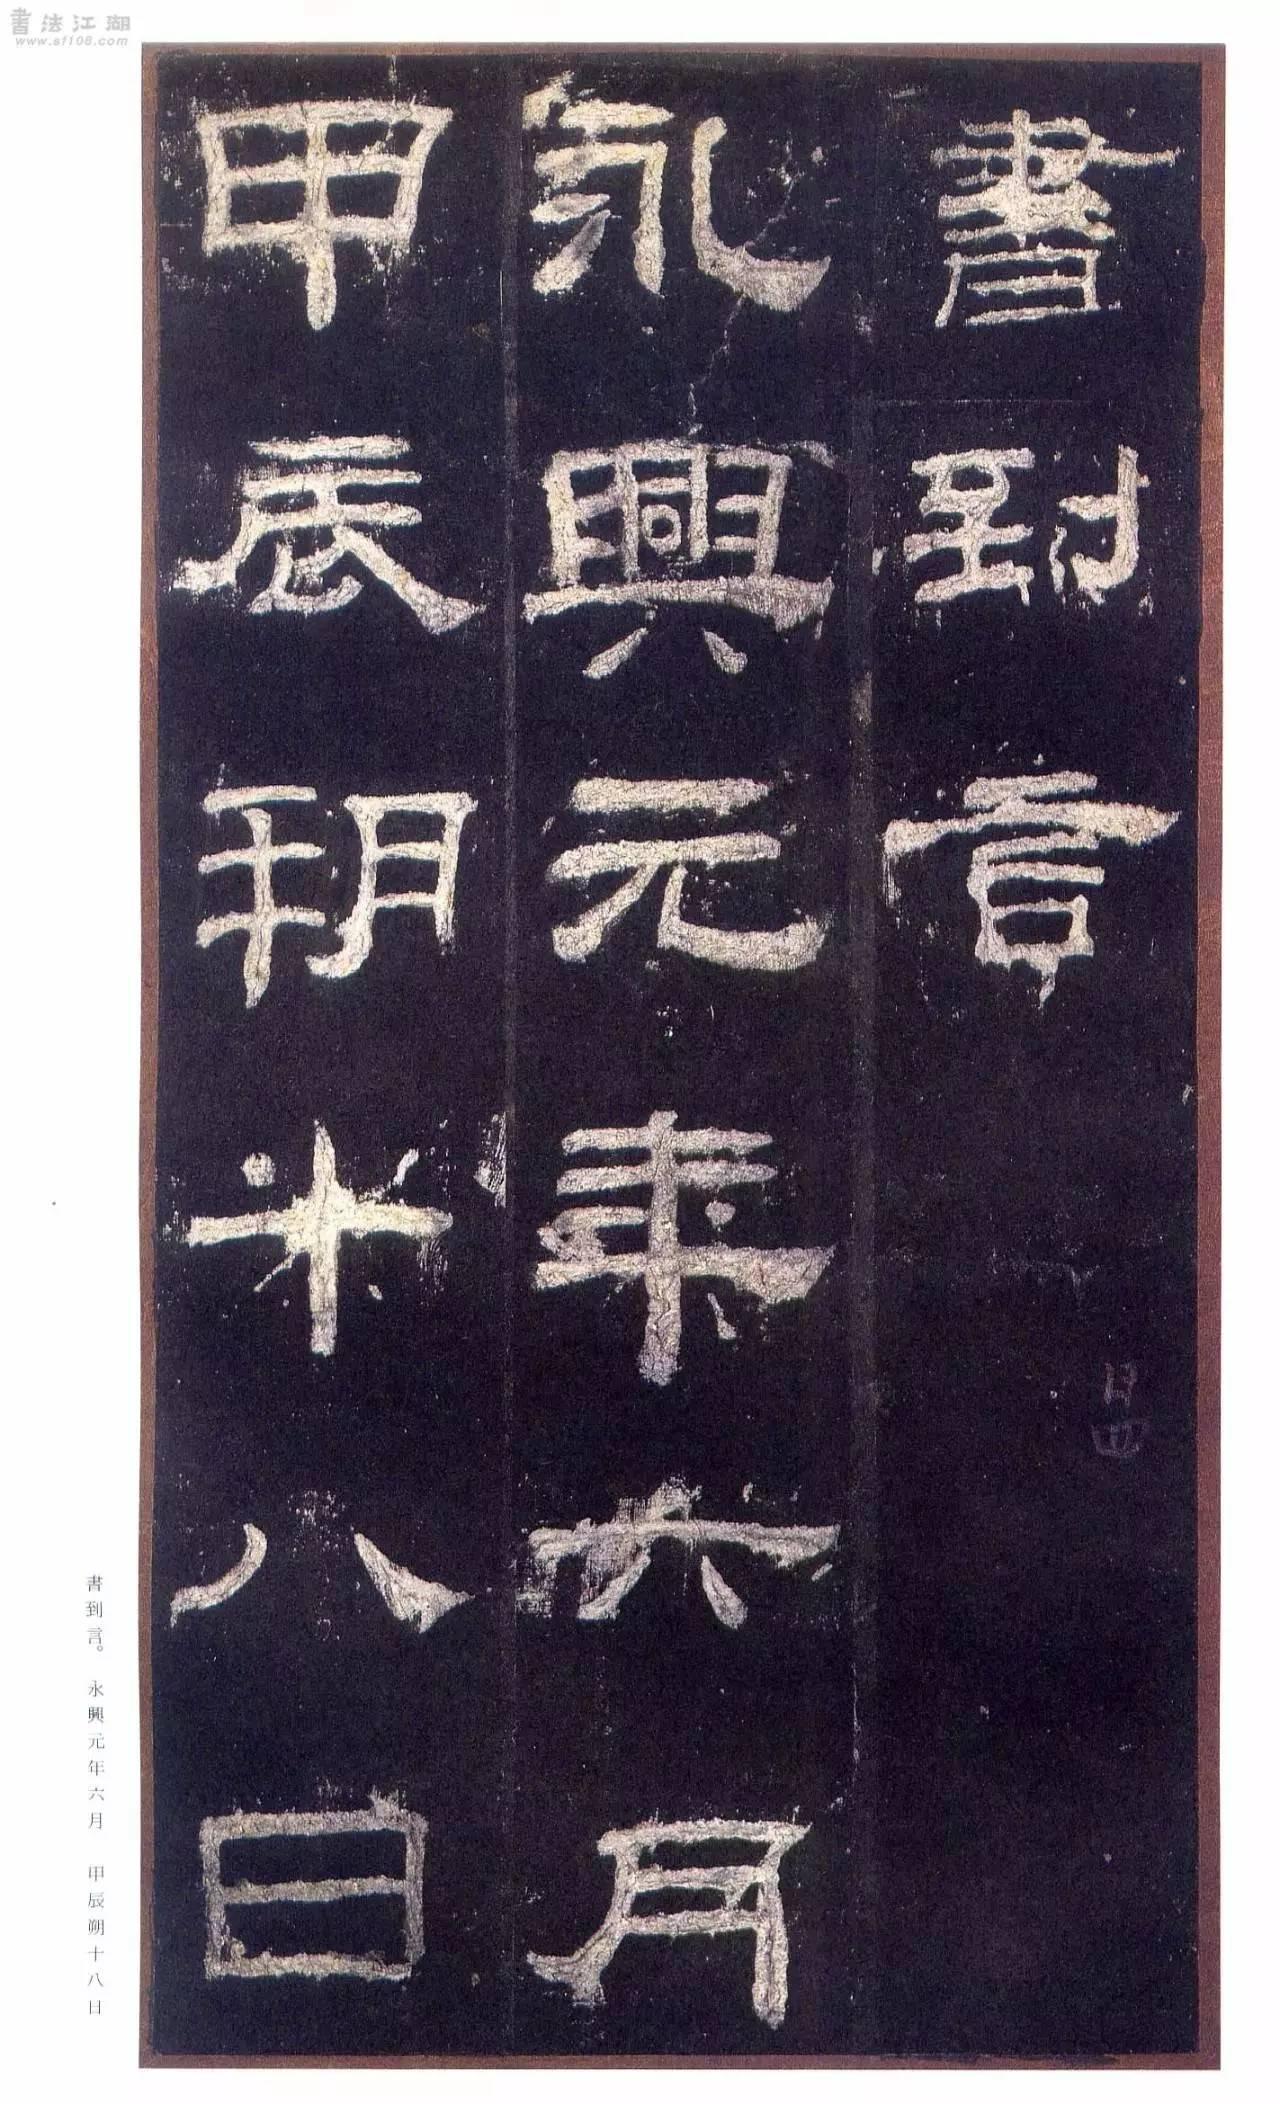 書法江湖
www.sf108.com
書到言
永興元年六月
甲辰朔十八日
書到言。永興元年六月 甲辰朔十八日